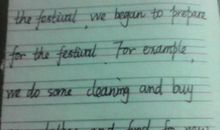 the festival, we began to prepare
for the festival. For example,
we do some cleaning and buy
and